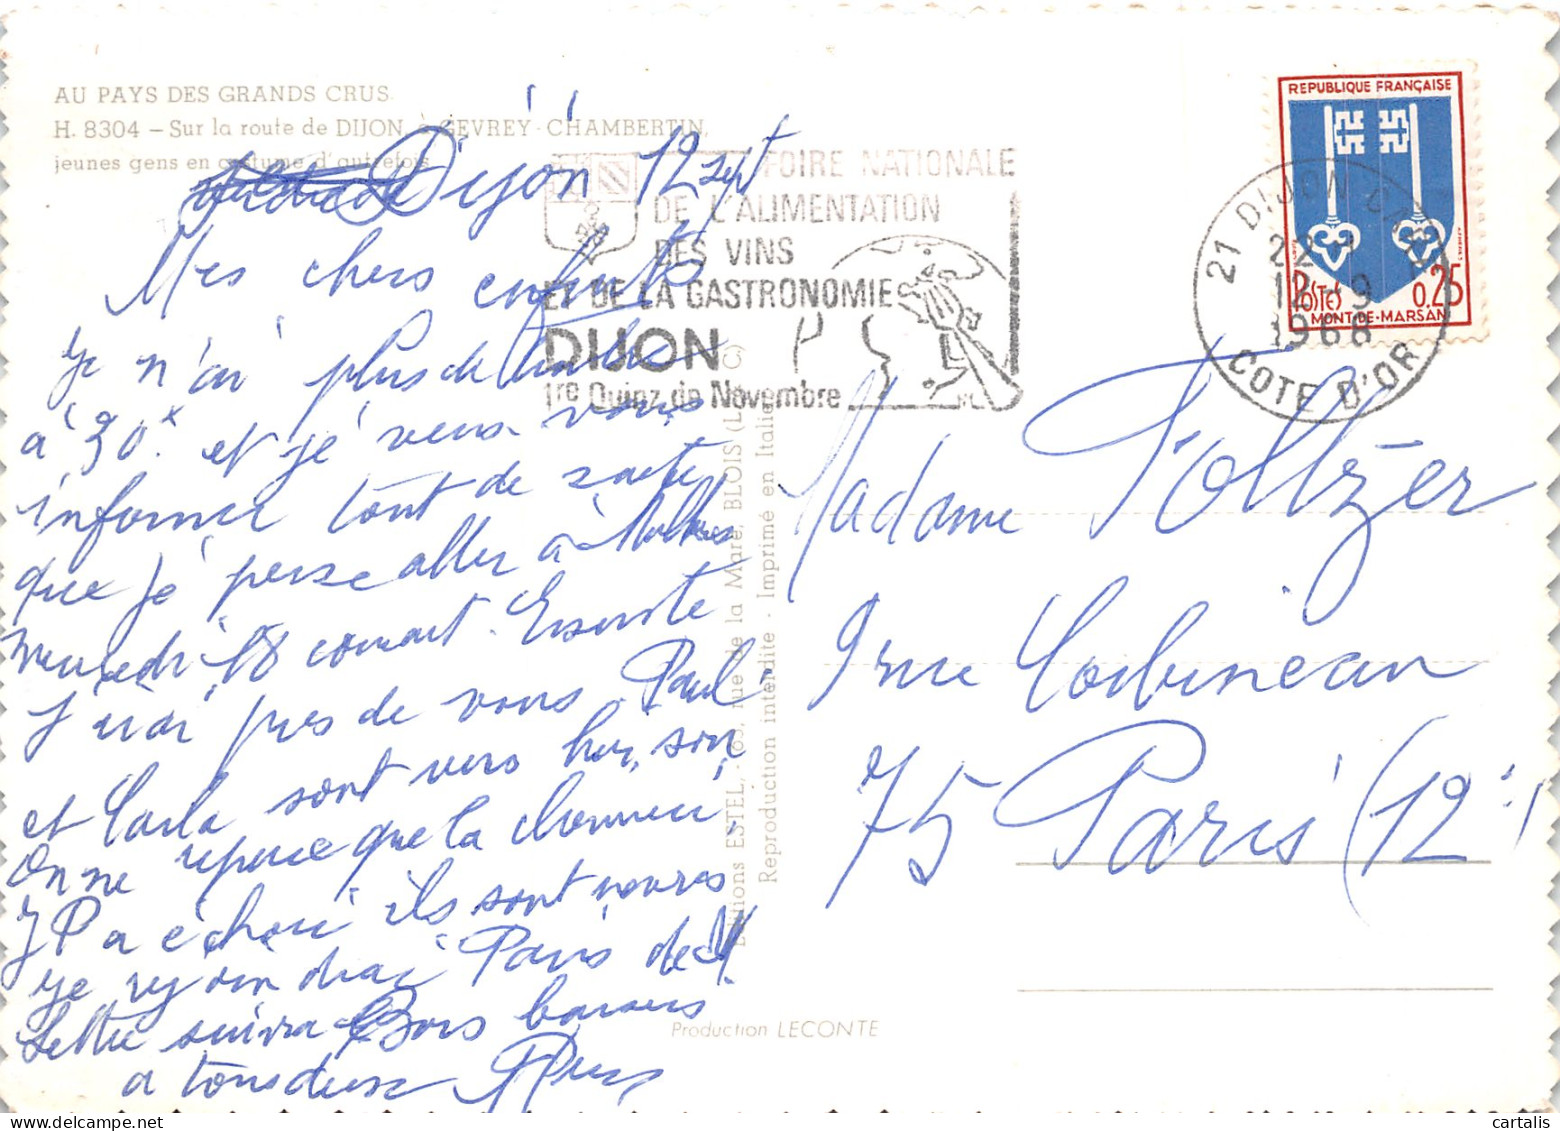 AU PAYS DES GRANDS CRUS.
H. 8304 – Sur la route de DIJON à GEVREY-CHAMBERTIN,
jeunes gens en costume d'autrefois
Dijon 12 sept
Mes chers enfants
je n'ai plus de
à 30f. et je veux vous
informer tout de suite
que je pense aller à
mercredi 18 courant. Ensuite
j'irai près de vous. Paul
et Carla sont vers
on ne repose que la
J P a échoué ils sont navrés
je rejoindrai Paris de M
lettre suivra Bons baisers
a tous deux
FOIRE NATIONALE
DE L'ALIMENTATION
DES VINS
ET DE LA GASTRONOMIE
DIJON
1re Quinz. de Novembre
REPUBLIQUE FRANÇAISE
POSTES 0,25
MONT-DE-MARSAN
21 DIJON
12-9
1968
COTE D'OR
Madame Poltzer
9 rue Corbineau
75 Paris (12e)
Editions ESTEL, rue de la Mare, BLOIS (L.-&-C.)
Reproduction interdite - Imprimé en Italie
Production LECONTE
cartalis